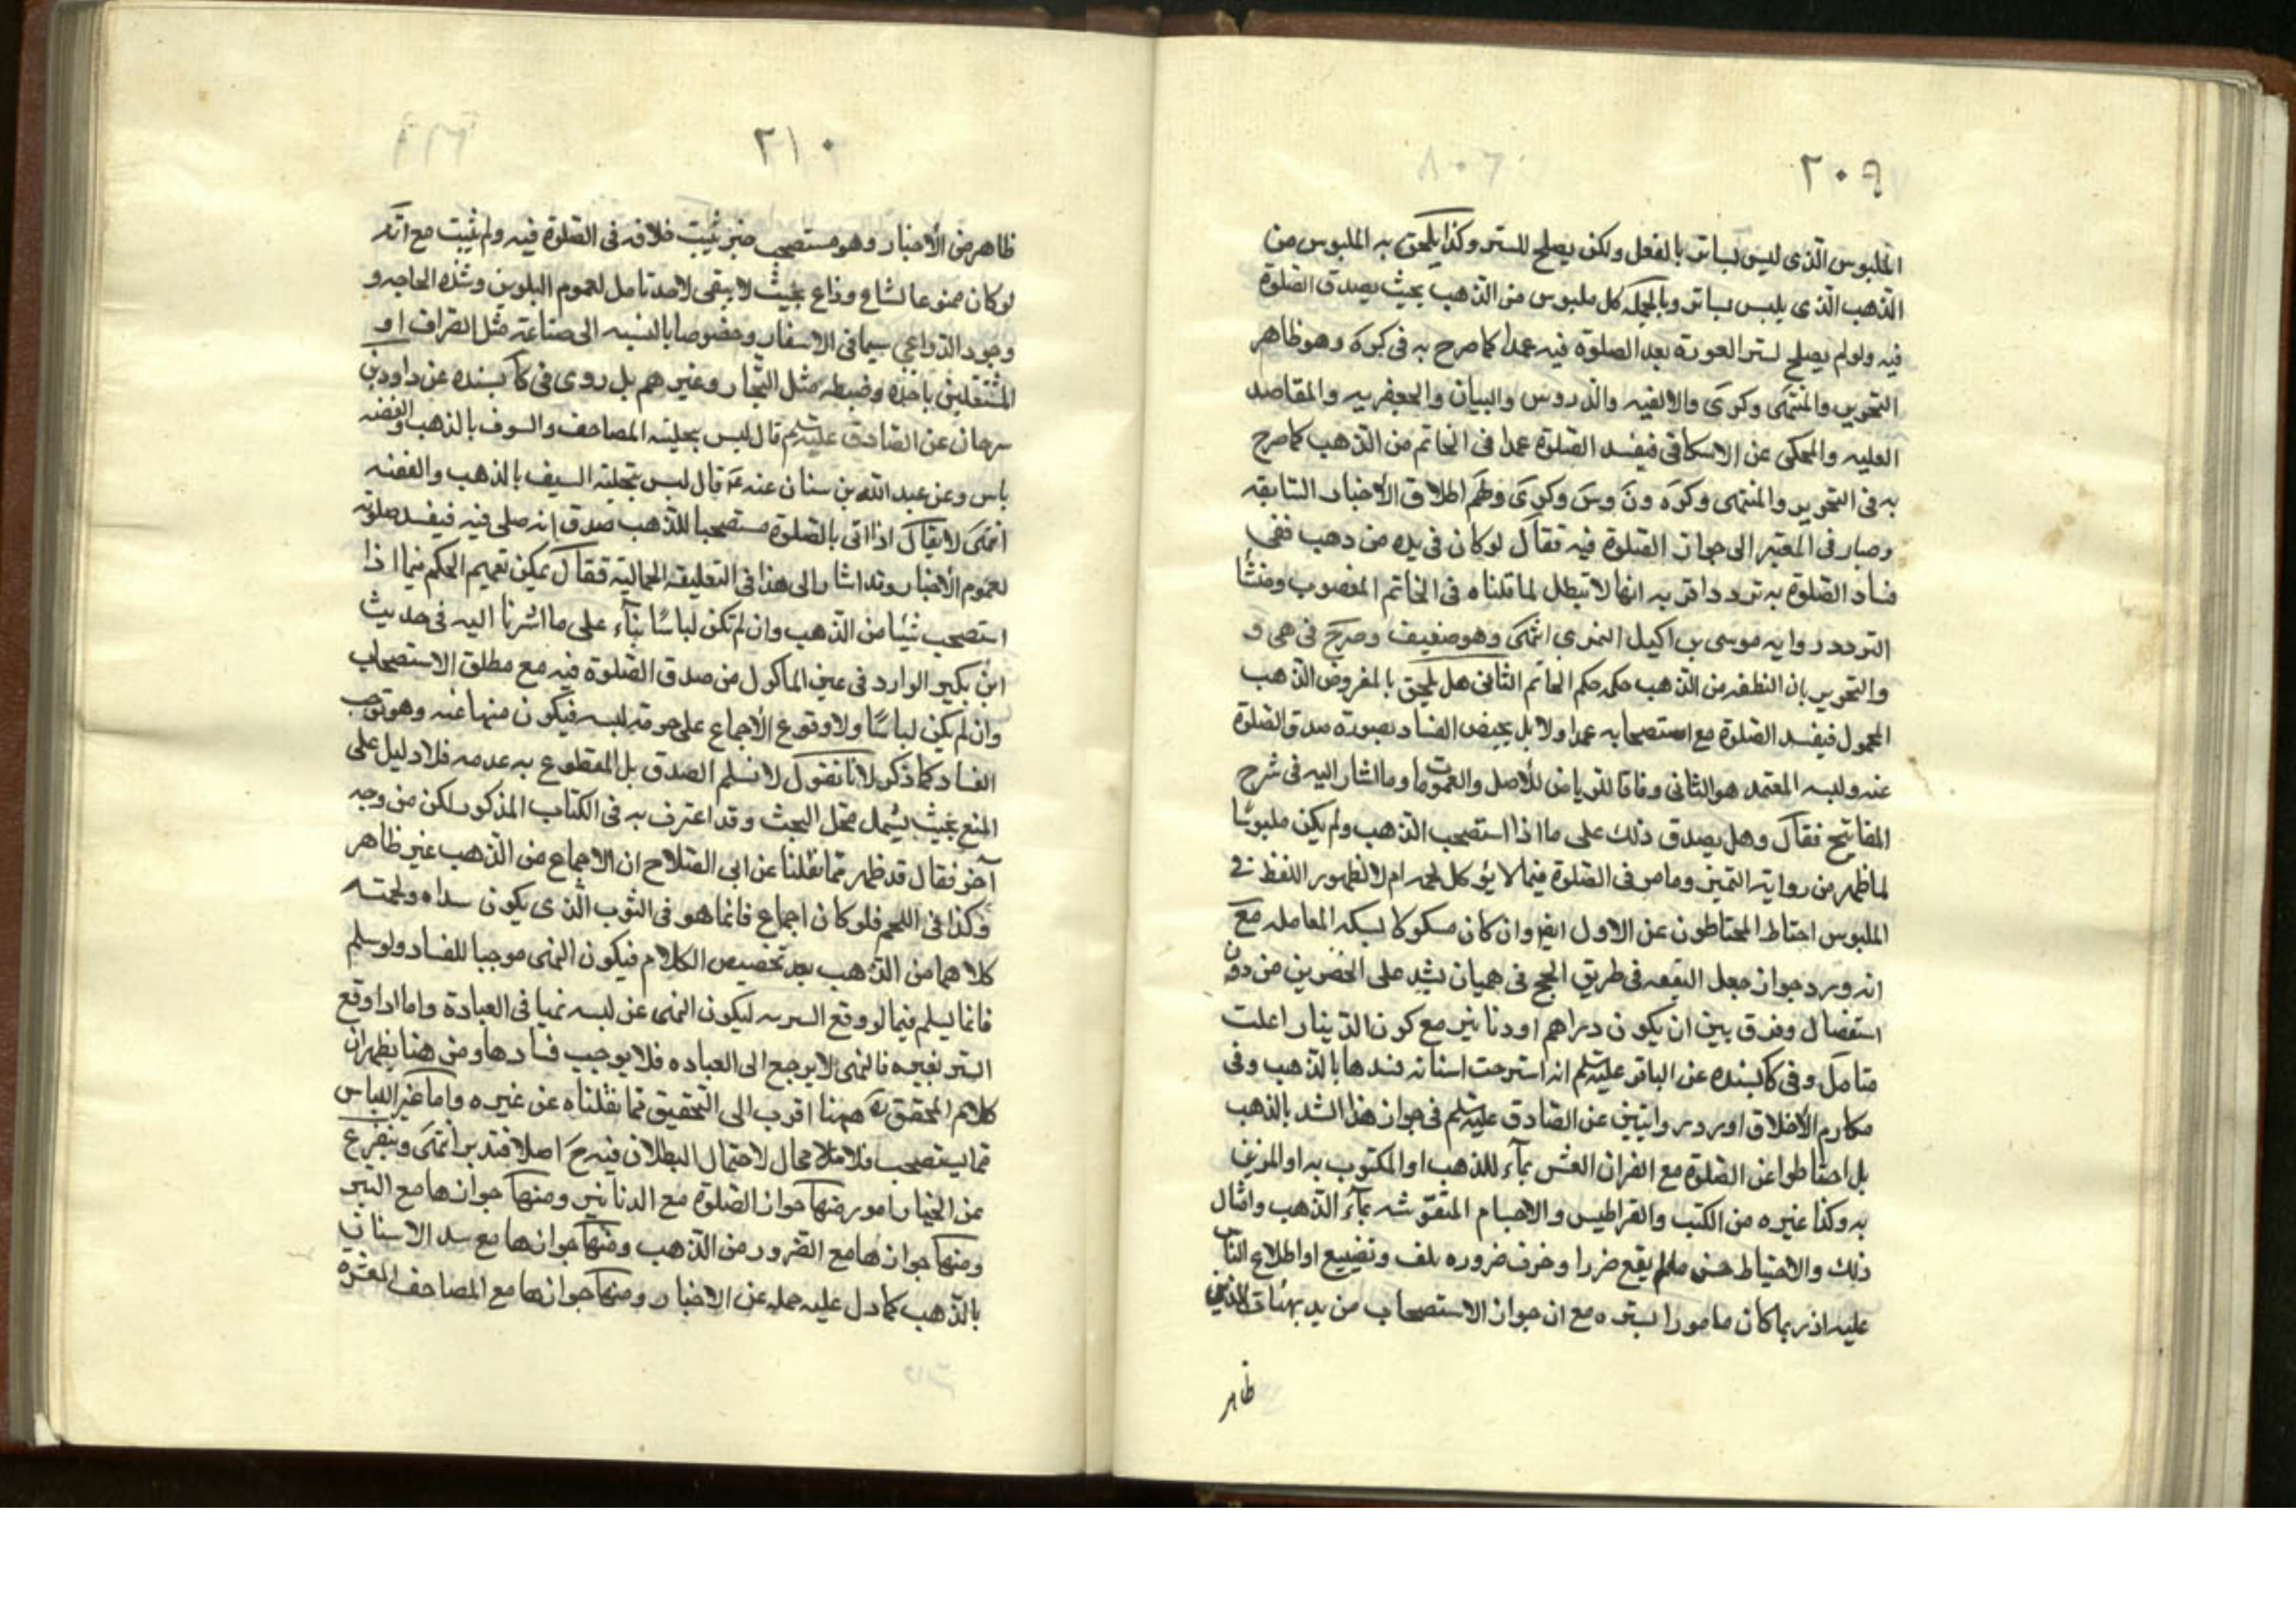 ٢٠٩
الملبوس الذى ليس بساتر بالفعل ولكن يصلح للستر وكذا يلحق به الملبوس من
الذهب الذى يلبس بساتر وبالجملة كل ملبوس من الذهب بحيث يصدق الصلوة
فيه ولو لم يصلح لستر العورة بعد الصلوة فيه عمدا كما صرح به فى كره وهو ظاهر
التحرير والمنتهى وكرى والالفيه والدروس والبيان والجعفريه والمقاصد
العليه والمحكى عن الاسكافى فيفسد الصلوة عمدا فى الخاتم من الذهب كما صرح
به فى التحرير والمنتهى وكره ون وس وكرى وظهر اطلاق الأخبار السابقه
وصار فى المعتبر الى جواز الصلوة فيه فقال لو كان فى يده من ذهب ففى
فساد الصلوة به تردد اقربه انها لا تبطل لما قلناه فى الخاتم المغصوب ومنشأ
التردد روايه موسى بن اكيل النمرى انتهى وهو ضعيف وصرح فى هى و
والتحرير بان المنطقه من الذهب حكمه حكم الخاتم الثانى هل يلحق بالمفروض الذهب
المحمول فيفسد الصلوة مع استصحابه عمدا ولا بل يختص الفساد بصورة صدق الصلوة
عنه ولبسه المعتمد هو الثانى وفاقا للرياض للأصل والعمومات وما اشار اليه فى شرح
المفاتيح فقال وهل يصدق ذلك على ما اذا استصحب الذهب ولم يكن ملبوسًا
لما ظهر من رواية النميرى وما مر فى الصلوة فيما لا يؤكل لحمه ام لا لظهور اللفظ فى
الملبوس احتاط المحتاطون عن الاول ايض وان كان مسكوكا بسكه المعامله مع
انه ورد جواز جعل النفقه فى طريق الحج فى هميان يشد على الخصرين من دون
استفصال وفرق بين ان يكون دراهم او دنانير مع كون الدينار اغلب
متامل وفى كا بسنده عن الباقر عليه السلم انه استرخت اسنانه فشدها بالذهب وفى
مكارم الأخلاق اورد روايتين عن الصادق عليه السلم فى جواز هذا الشد بالذهب
بل احتاطوا عن الصلوة مع القران العشر بمآء للذهب او المكتوب به او المزين
به وكذا غيره من الكتب والقراطيس والاجسام المنقوشه بمآء الذهب وامثال
ذلك والاحتياط حسن ما لم يقع ضررا وخرف ضروره تلف وتضييع او اطلاع الناس
عليه اذ ربما كان مامورا بستره مع ان جواز الاستصحاب من يد بهئات الدين
ظاهر
٢١٠
ظاهر من الأخبار وهو مستصحب حتى يثبت خلافه فى الصلوة فيه ولم يثبت مع انه
لو كان ممنوعا لشاع وذاع بحيث لا يبقى لاحد تامل لعموم البلوى وشده الحاجه و
وجود الدواعى سيما فى الاسفار وخصوصا بالنسبه الى صناعته مثل الصراف او
المشتغلين باخذه وضبطه مثل التجار وغيرهم بل روى فى كا بسنده عن داود بن
سرحان عن الصادق عليه السلم قال ليس بحلية المصاحف والسوف بالذهب والفضه
باس وعن عبد الله بن سنان عنه ع قال ليس بتحلية السيف بالذهب والفضه
انتهى لا يقال اذا اتى بالصلوة مستصحبا للذهب صدق انه صلى فيه فيفسد صلوته
لعموم الأخبار وقد اشار الى هذا فى التعليقة الجمالية فقال يمكن تعميم الحكم فيما اذا
استصحب شيئا من الذهب وان لم تكن لباسًا بنآء على ما اشرنا اليه فى حديث
ابن بكير الوارد فى غير الماكول من صدق الصلوة فيه مع مطلق الاستصحاب
وان لم يكن لباسًا ولا وقوع الأجماع على حرمة لبسه فيكون منهيا عنه وهو توجب
الفساد كما ذكر لانا نقول لا نسلم الصدق بل المقطوع به عدمه فلا دليل على
المنع بحيث يشمل محل البحث وقد اعترف به فى الكتاب المذكور لكن من وجه
آخر فقال قد ظهر مما نقلنا عن ابى الصلاح ان الاجماع من الذهب غير ظاهر
وكذا فى اللحم فلو كان اجماع فانما هو فى الثوب الذى يكون سداه ولحمته
كلاهما من الذهب بعد تخصيص الكلام فيكون النهى موجبا للفساد ولو سلم
فانما يسلم فيما لو وقع الستر به ليكون النهى عن لبسه نهيا فى العبادة واما اذا وقع
الستر بغيره فالنهى لا يرجع الى العباده فلا يوجب فسادها ومن هنا يظهر ان
كلام المحقق ره ههنا اقرب الى التحقيق مما نقلناه عن غيره واما غير اللباس
مما يستصحب فلا مجال لاحتمال البطلان فيه ح اصلا فتدبر انتهى وينفرع
عن الخيار امور منها جواز الصلوة مع الدنانير ومنها جوازها مع التبر
ومنها جوازها مع الضرور من الذهب ومنها جوازها مع سد الاسنان
بالذهب كما دل عليه جمله عن الاخبار ومنها جوازها مع المصاحف المعشرة